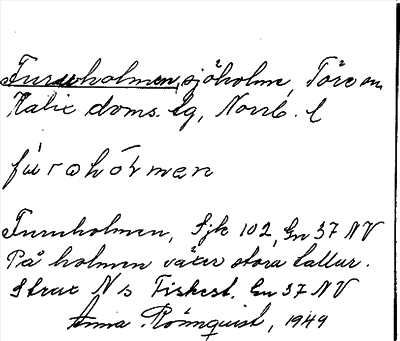 Furuholmen, sjöholme, Töre sn,
Kalix doms. lg, Norrb. l
fùrahólmen
Furuholmen, Sjk 102, Gn 37 NV
På holmen växer stora tallar.
Strax N s Fiskest. Gn 37 NV
Anna Rönnquist, 1949